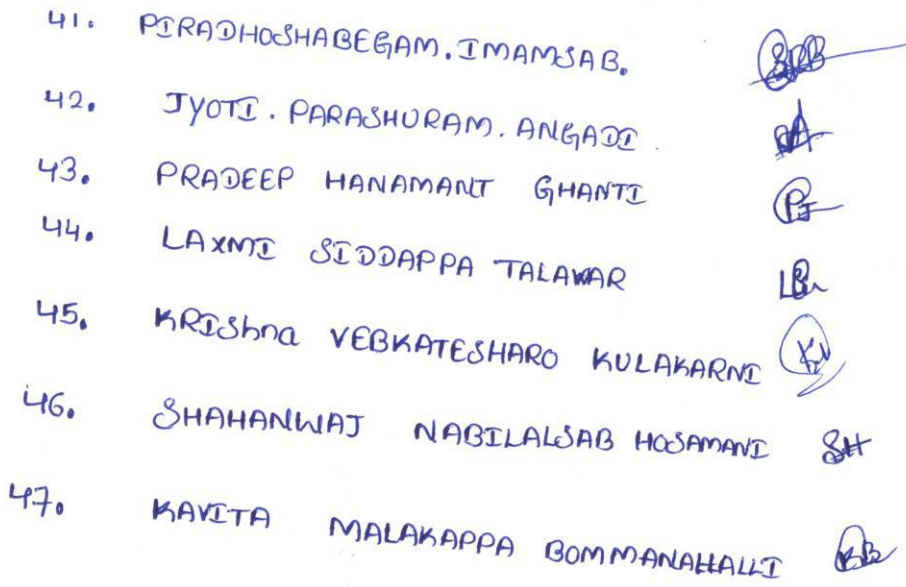 41. PIRADHOSHABEGAM. IMAMSAB.
42. JYOTI. PARASHURAM. ANGADI.
43. PRADEEP HANAMANT GHANTI
44. LAXMI SIDDAPPA TALAWAR
45. KRIShna VEBKATESHARO KULAKARNI KV
46. SHAHANWAJ NABILALSAB HOSAMANI SH
47. KAVITA MALAKAPPA BOMMANAHALLI